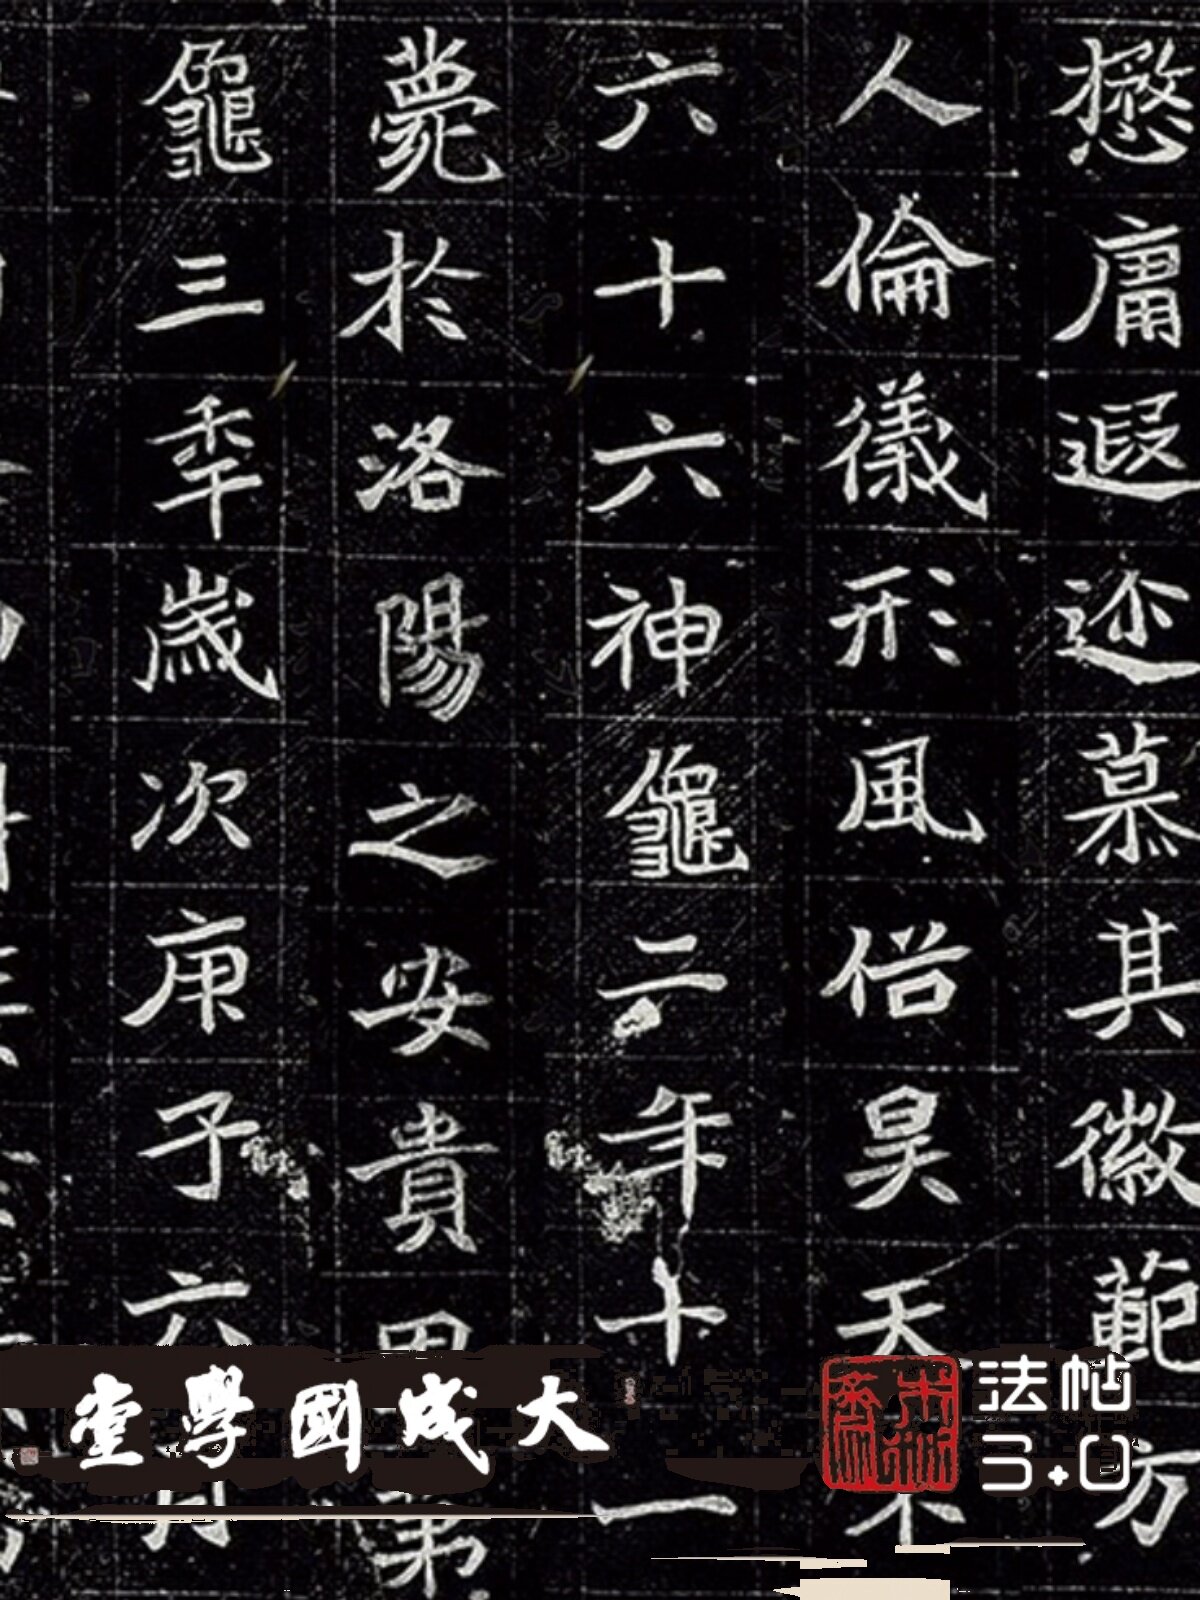 懋庸遐迩慕其徽範方
人倫儀形風俗昊天不
六十六神龜二年十一
薨於洛陽之安貴里第
龜三秊歲次庚子六月
大成國學堂
法帖
3.0